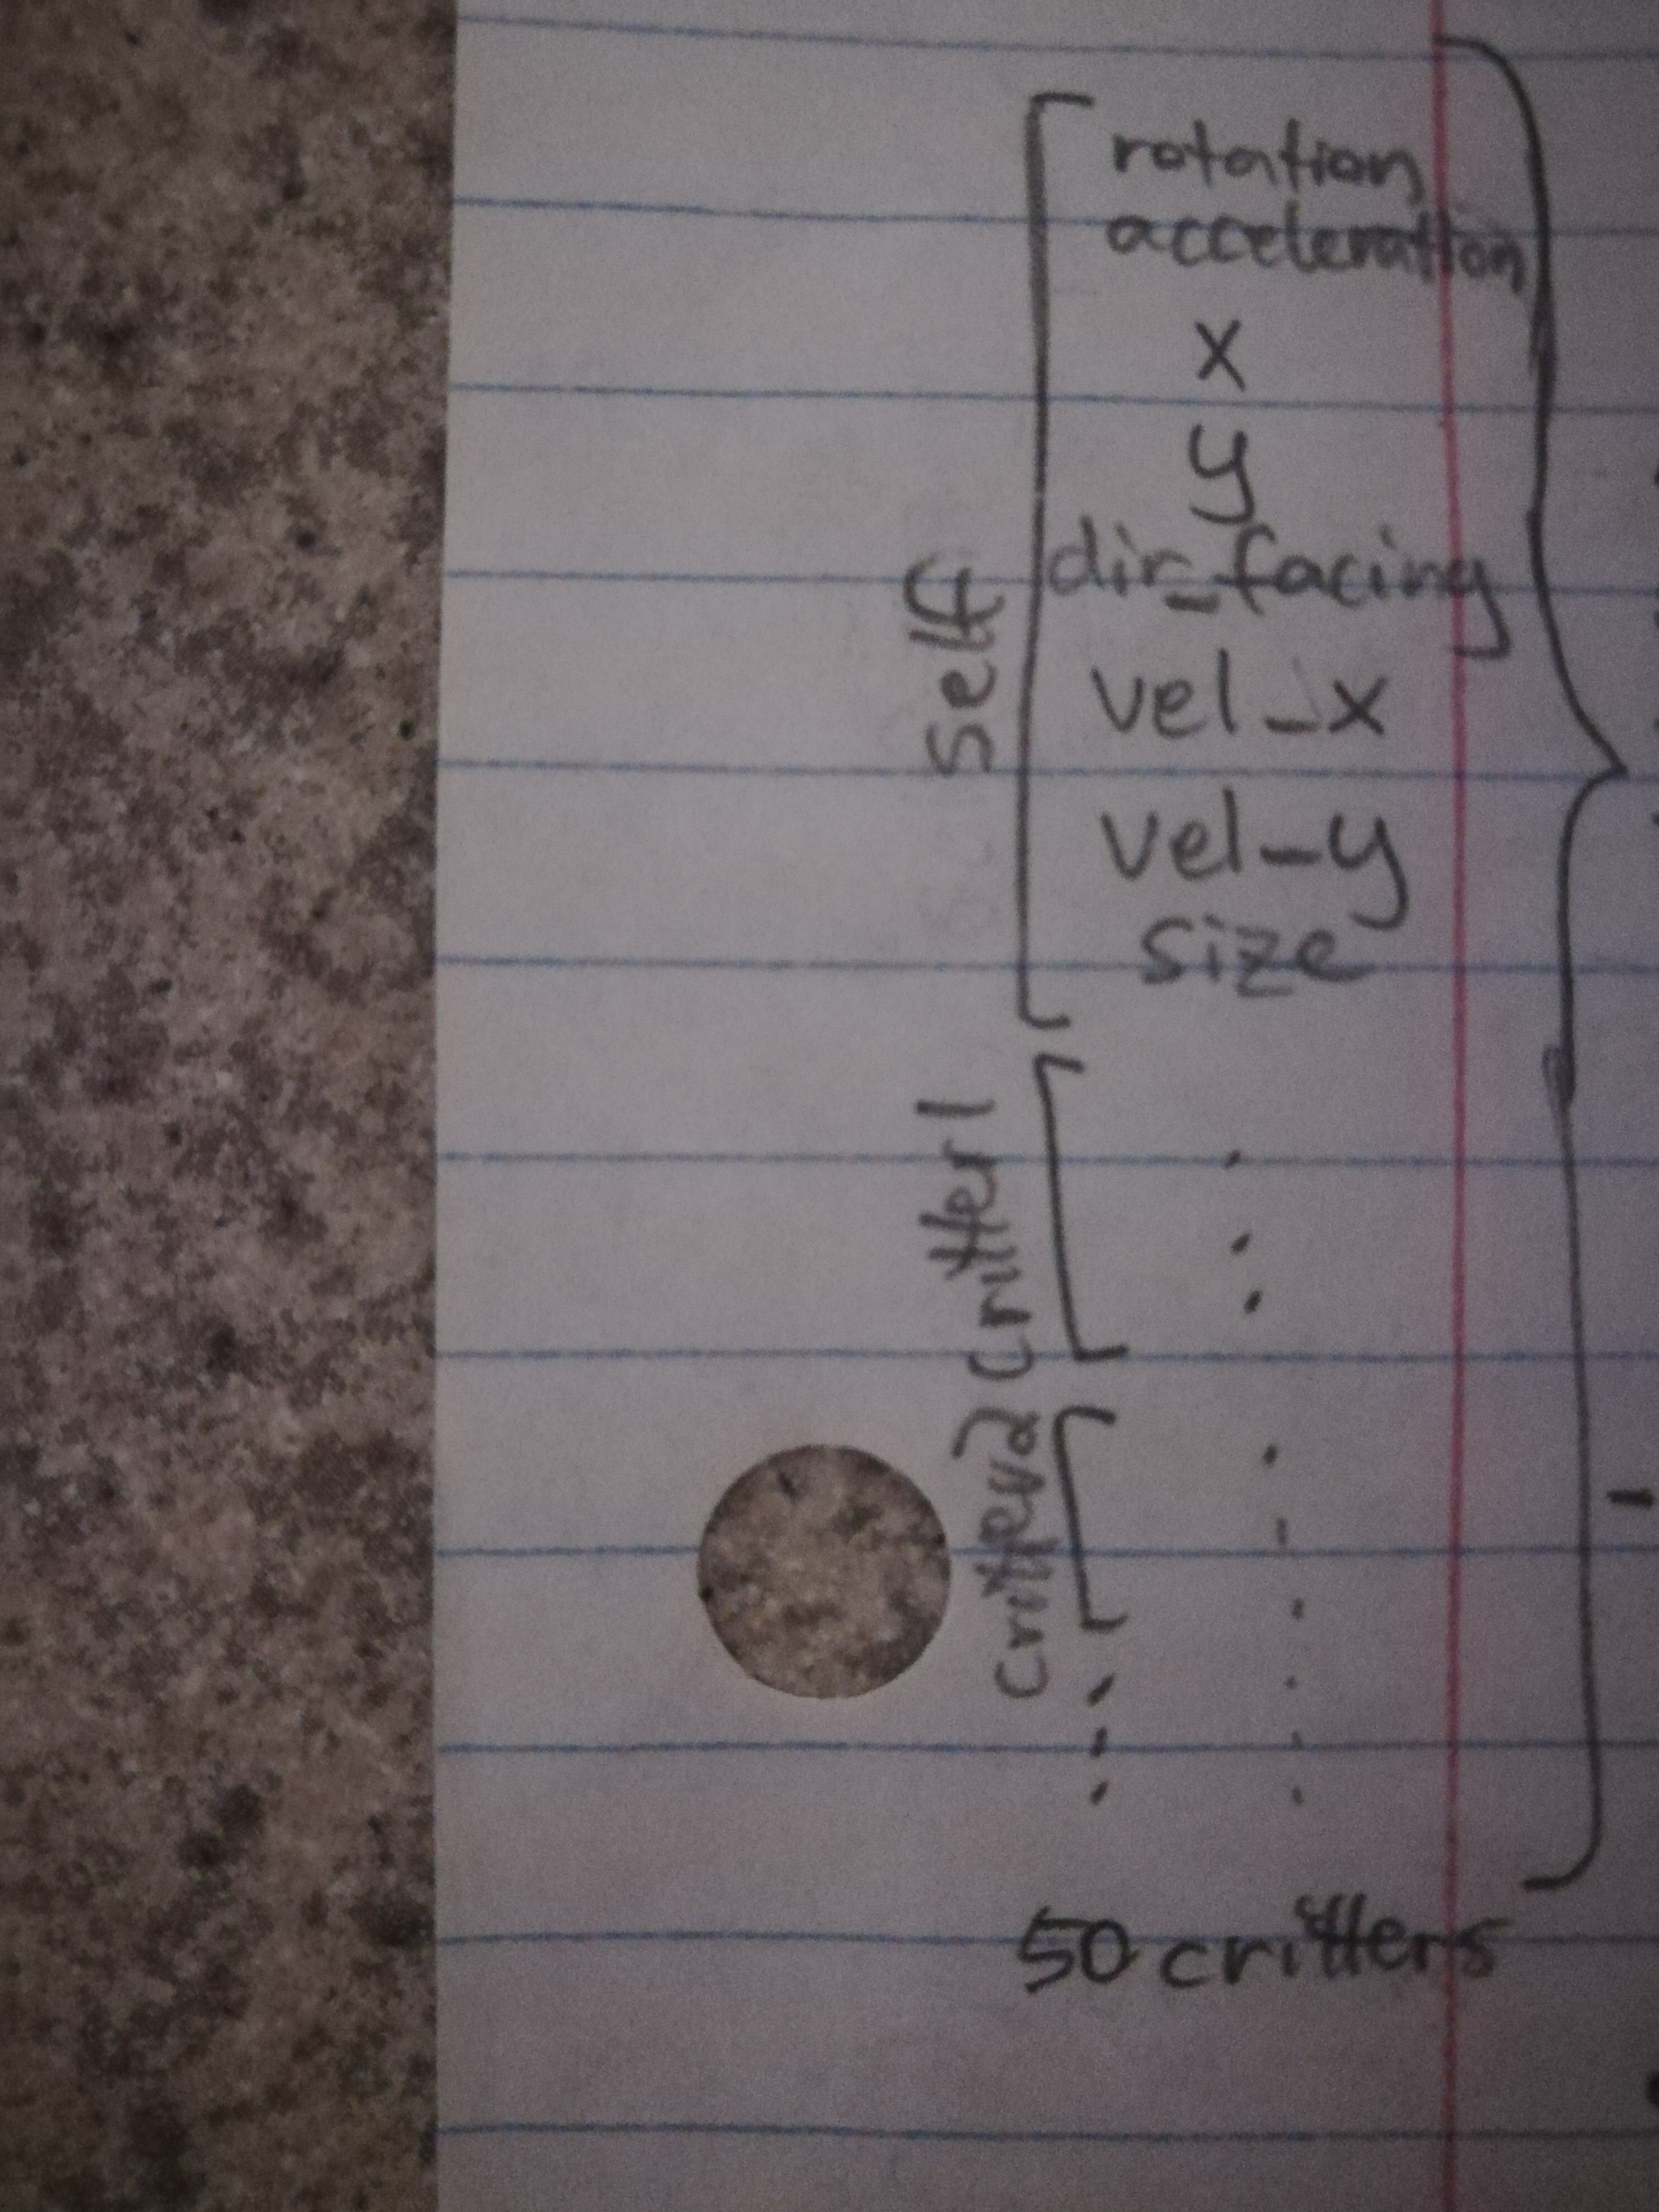 rotation
acceleration
x
y
dir_facing
vel_x
vel_y
size
self
critter 1
critter 2
50 critters